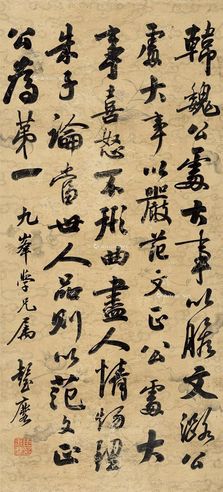 韓魏公處大事以膽文潞公
處大事以嚴范文正公處大
事喜怒不形曲盡人情物理
朱子論當世人品則以范文正
公為第一 九峯學兄屬